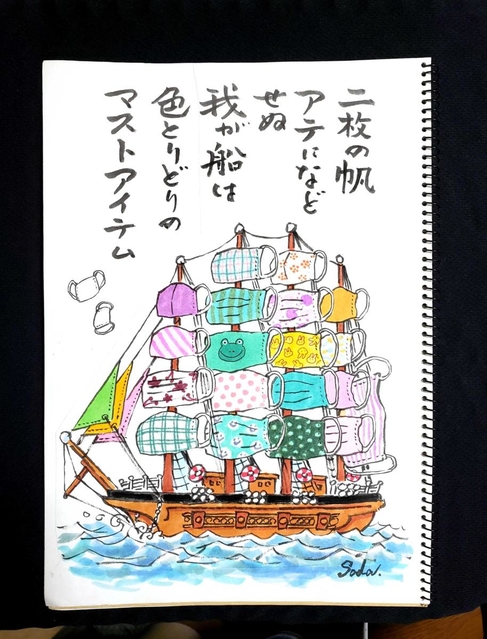 二枚の帆
アテになど
せぬ
我が船は
色とりどりの
マストアイテム
Sadav.